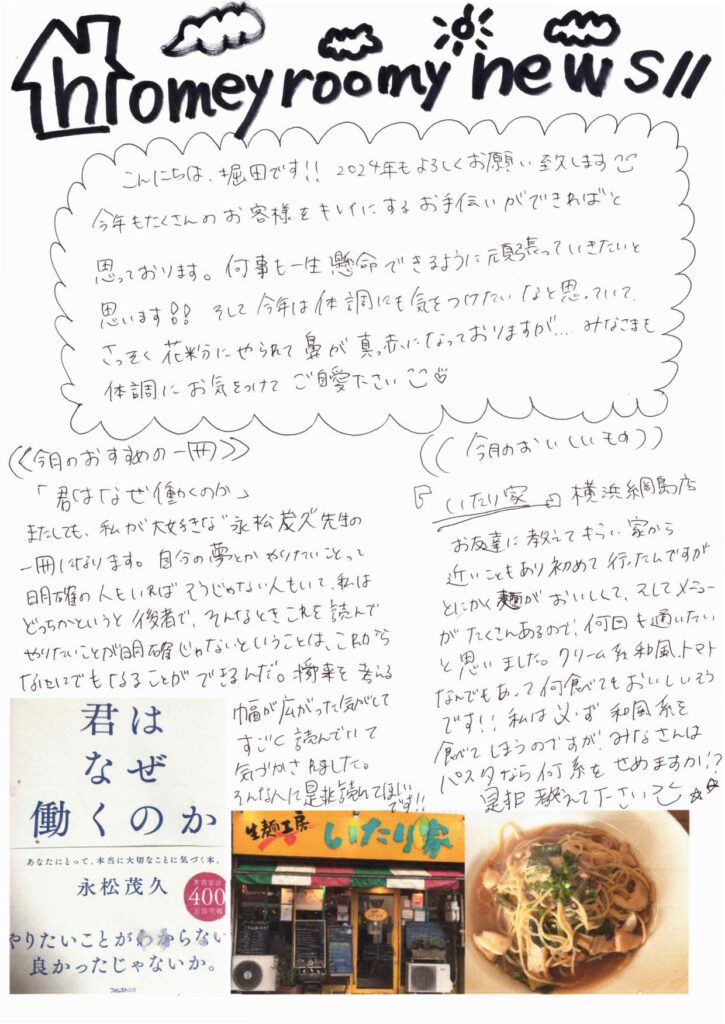 homeyroomy news!!
こんにちは、堀田です!! 2024年もよろしくお願い致します
今年もたくさんのお客様をキレイにするお手伝いができればと
思っております。何事も一生懸命できるように頑張っていきたいと
思います!! そして今年は体調にも気をつけたいなと思っていて、
さっそく花粉にやられて鼻が真っ赤になっておりますが… みなさまも
体調にお気をつけてご自愛ください♡
《今月のおすすめの一冊》
「君はなぜ働くのか」
またしても、私が大好きな永松茂久先生の
一冊になります。自分の夢とかやりたいことって
明確の人もいればそうじゃない人もいて、私は
どっちかというと後者で、そんなときこれを読んで
やりたいことが明確じゃないということは、これから
なににでもなることができるんだ。将来を考える
幅が広がった気がして
すごく読んでいて
気づかされました。
そんな人に是非読んでほしい
です!!
((今月のおいしいもの))
『いたり家』横浜綱島店
お友達に教えてもらい家から
近いこともあり初めて行ったんですが
とにかく麺がおいしくて、そしてメニュー
がたくさんあるので、何回も通いたい
と思いました。クリーム系和風、トマト
なんでもあって何食べてもおいしいそう
です!! 私は必ず和風系を
食べてしまうのですが、みなさんは
パスタなら何系をせめますか!?
是非教えて下さい☆☆
君は
なぜ
働くのか
あなたにとって、本当に大切なことに気づく本。
永松茂久
著書累計
400
万部突破
やりたいことがわからない
良かったじゃないか。
フォレスト出版
生麺工房 いたり家